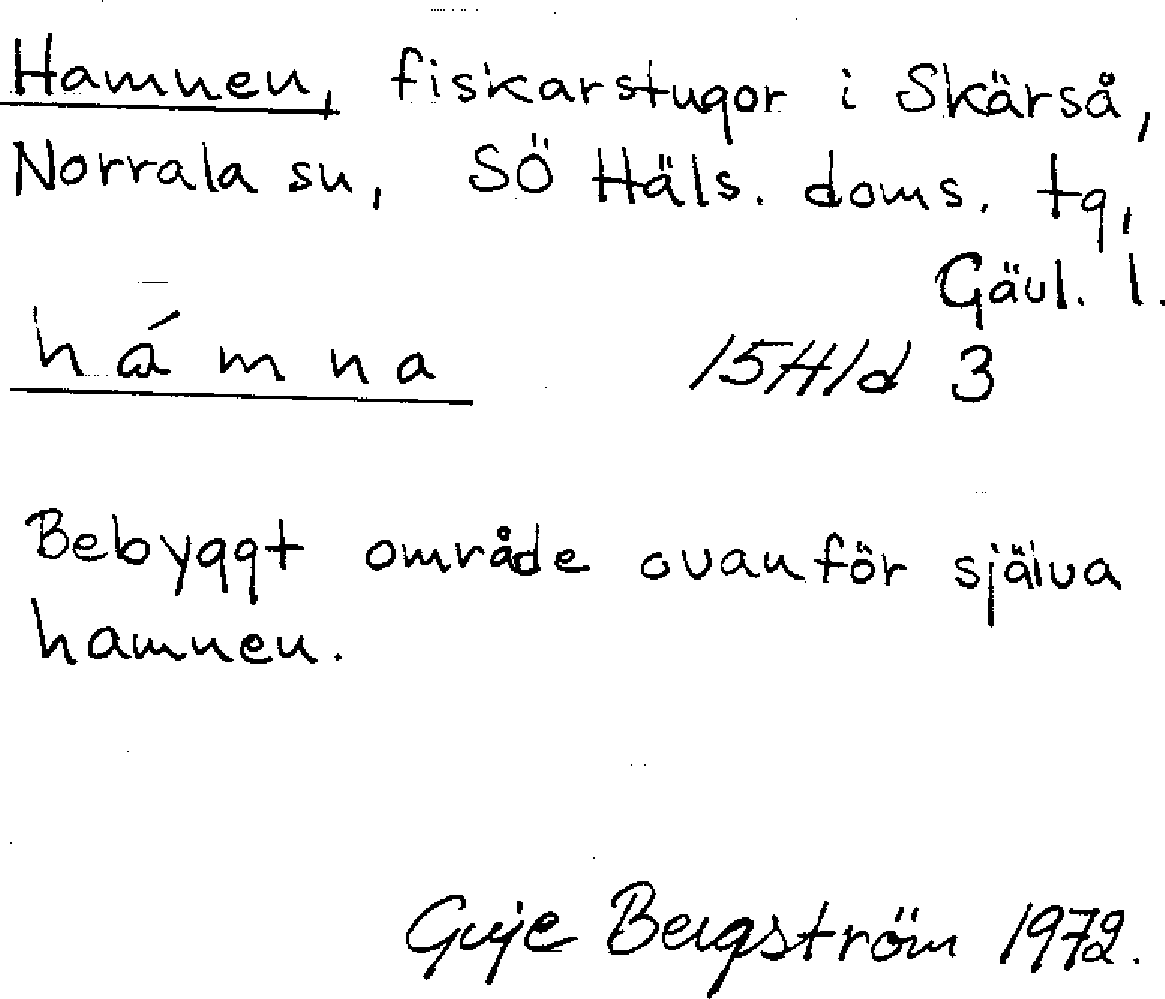 Hamnen, fiskarstugor i Skärså,
Norrala sn, SÖ Häls. doms. tg,
Gävl. l.
hámna 15H1d 3
Bebyggt område ovanför själva
hamnen.
Bergström 1972.